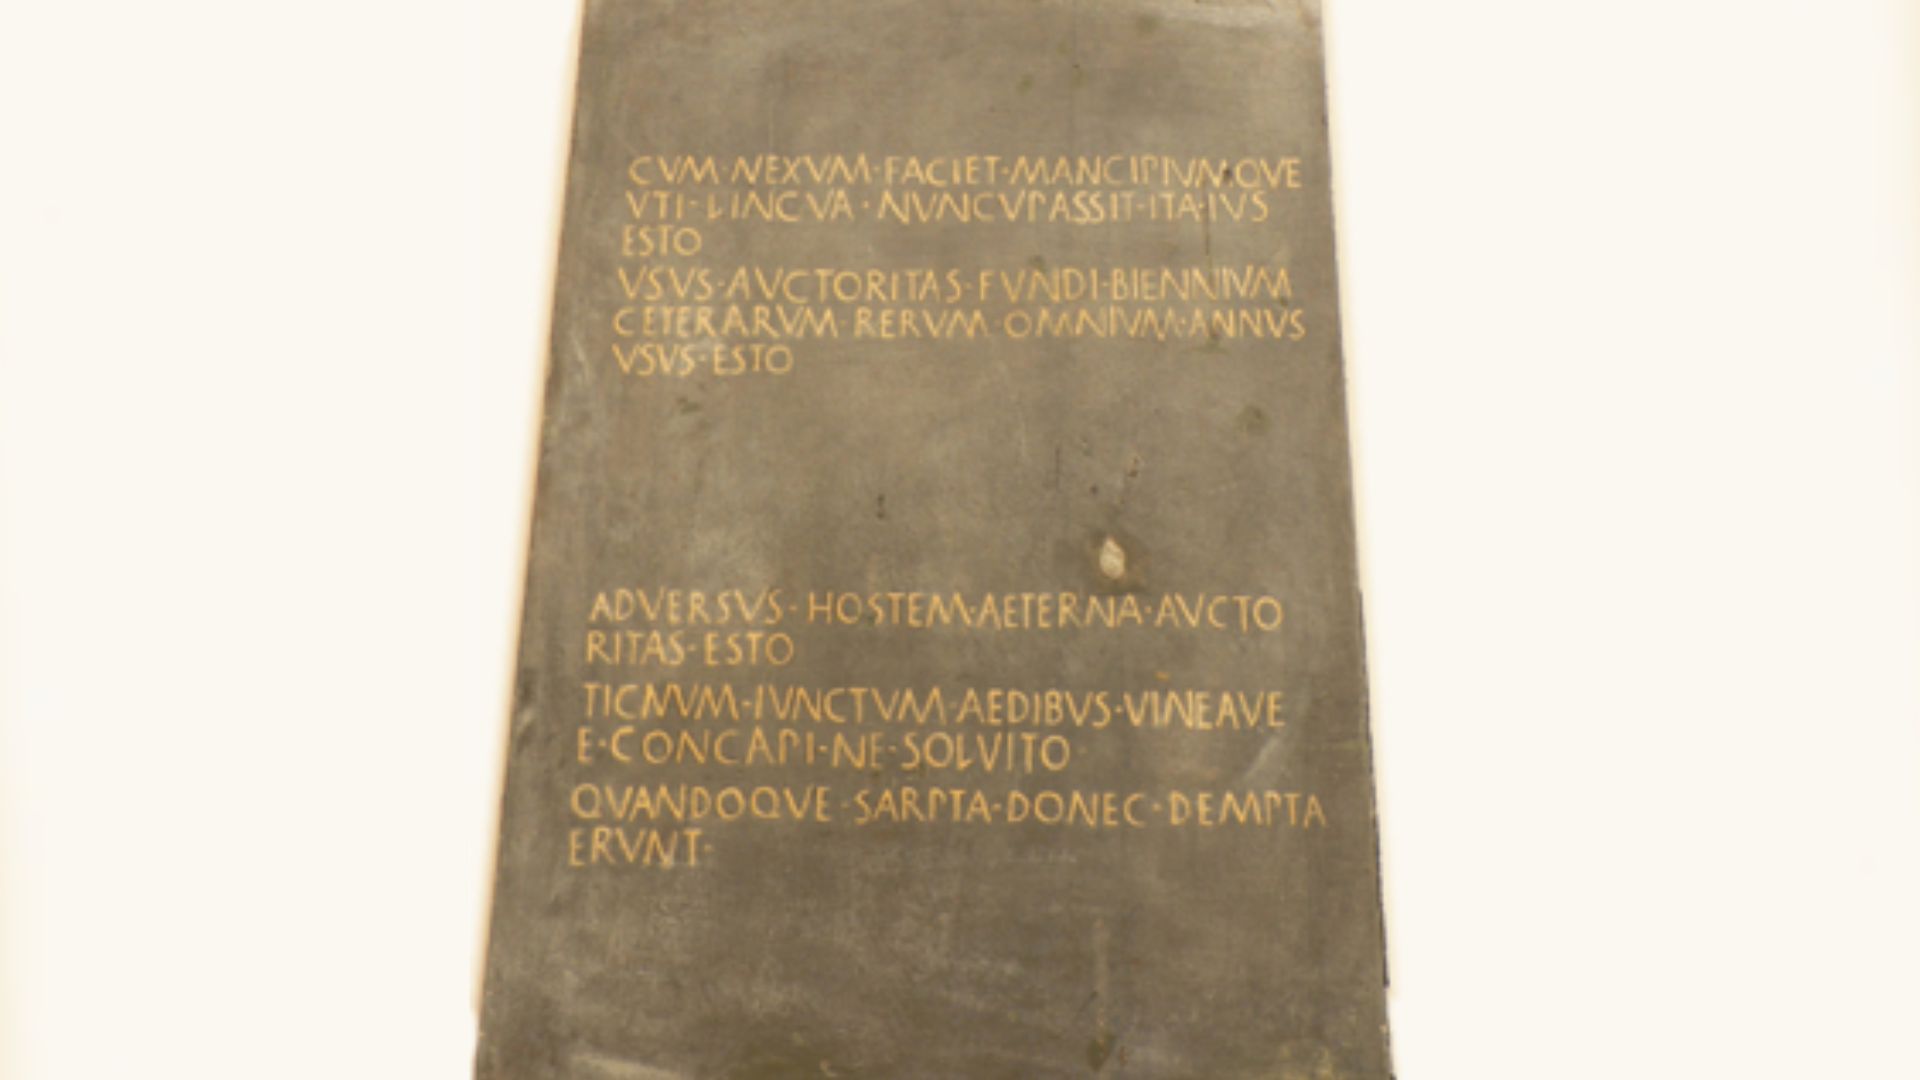 CVM·NEXVM·FACIET·MANCIPIVMQVE
VTI·LINCVA·NVNCVPASSIT·ITA·IVS
ESTO
VSVS·AVCTORITAS·FVNDI·BIENNIVM
CETERARVM·RERVM·OMNIVM·ANNVS
VSVS·ESTO
ADVERSVS·HOSTEM·AETERNA·AVCTO
RITAS·ESTO
TICNVM·IVNCTVM·AEDIBVS·VINEAVE
E·CONCAPI·NE·SOLVITO
QVANDOQVE·SARPTA·DONEC·DEMPTA
ERVNT·